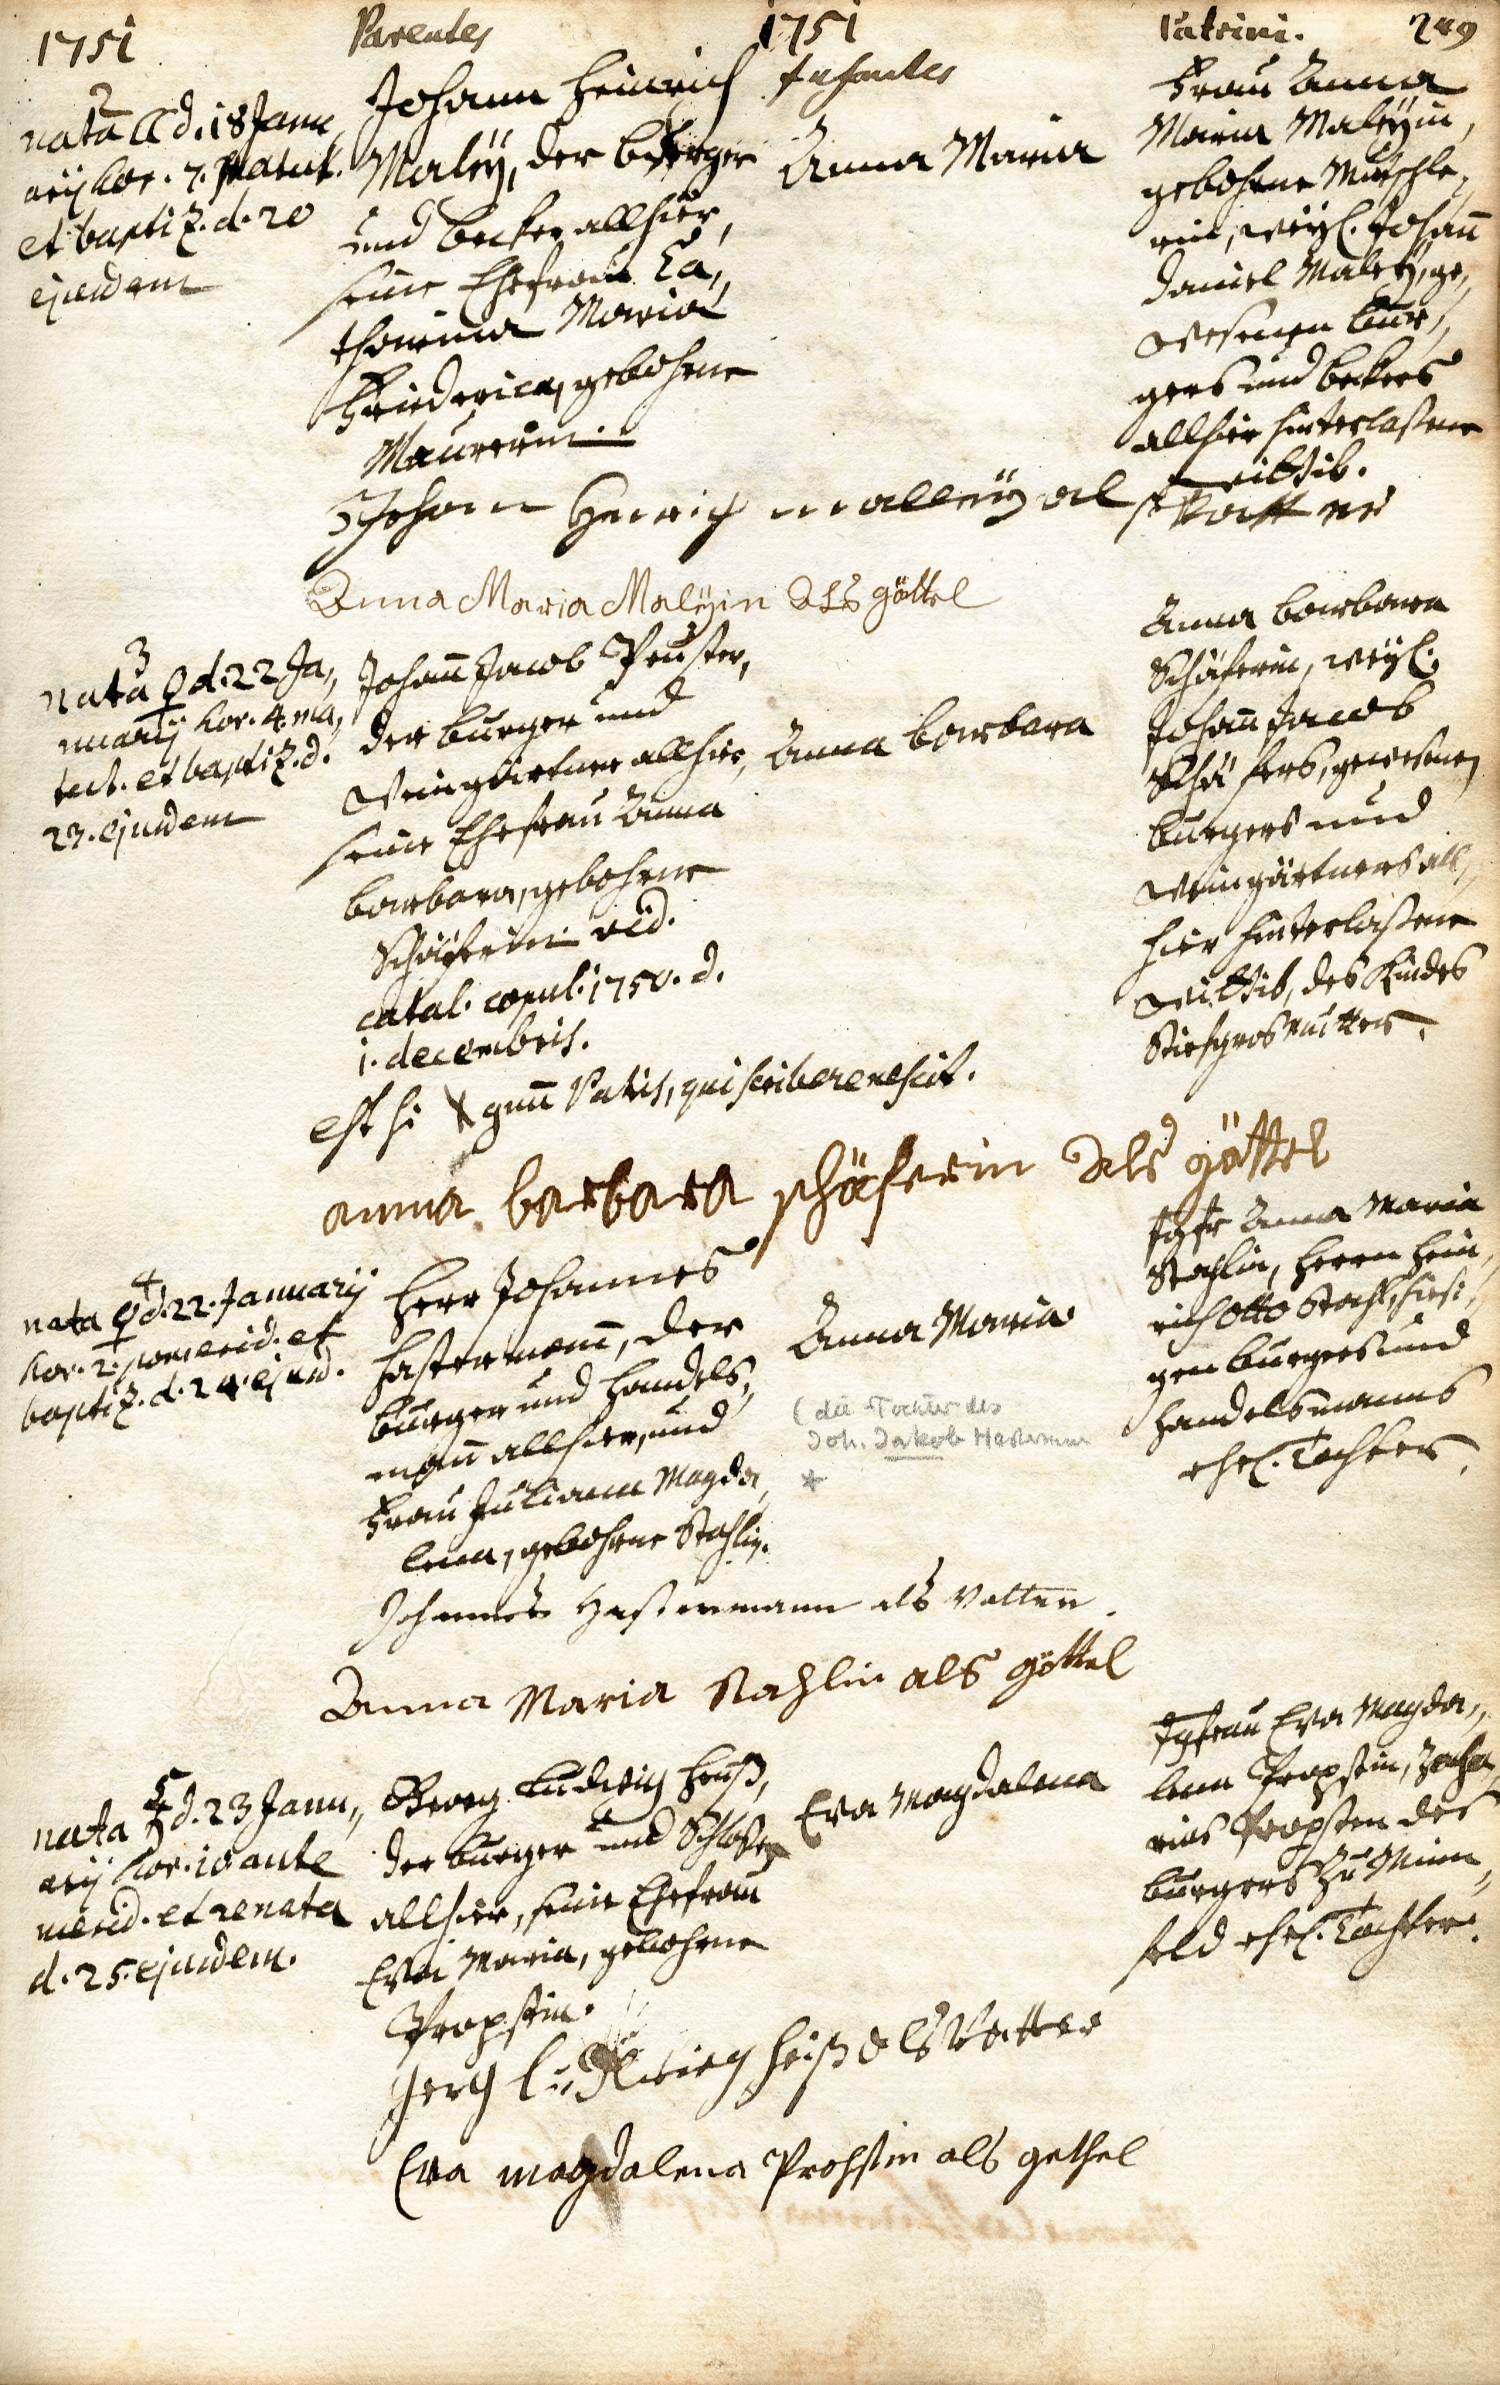 1751 Parentes 1751 Patrini. 249
Infantes
2
nata d. 18 Janu
arij hor. 7. matut.
et baptiz. d. 20
ejusdem
Johann Heinrich
Maley, der burger
und becker allhier,
seine Ehefrau Ca,,
tharina Maria
Friederica, gebohrne
Maurerin.
Anna Maria
Frau Anna
Maria Maleyin,
gebohrne Mutschle,,
rin, weyl. Johañ
Daniel Maley, ge,,
wesenen bur,,
gers und beckers
allhier hinterlaßene
Wittib.
Johann Henrich malleÿ als Vatter
Anna Maria Malÿin Als göttel
3
nata ♀ d. 22 Ja,,
nuarij hor. 4. ma,,
tut. et baptiz. d.
23. ejusdem
Johañ Jacob Peuster,
der burger und
Weingärtner allhier,
seine Ehefrau Anna
barbara, gebohrne
Schäferin vid.
catal. copul. 1750. d.
1. decembris.
Anna barbara
Anna barbara
Schäferin, weyl.
Johañ Jacob
Schäfers, gewesenen
burgers und
Weingärtners all,,
hier hinterlaßene
Wittib, des Kindes
Stiefgrosmutter.
est hi signũ Patris, qui scribere nescit.
anna barbara schäferin Als göttel
4
nata ♀ d. 22. Januarij
hor. 2. pomerid. et
baptiz. d. 24. ejusd.
Herr Johannes
Hastermann, der
burger und handels,,
mañ allhier, und
Frau Juliana Magda,,
lena, gebohrne Stahlin.
Anna Maria
(die Tochter des
Joh. Jakob Hastermann
*
Jgfr Anna Maria
Stahlin, Herrn Hein,,
rich Otto Stahl, hiesi,,
gen burgers und
handelsmanns
ehel. Tochter.
Johannes Hastermann als Vatter.
Anna Maria Stahlin als göttel
5
nata ♄ d. 23 Janu,,
arij hor. 10 ante
merid. et renata
d. 25. ejusdem.
Georg Ludwig Heuß,
der burger und Schloßer
allhier, seine Ehefrau
Eva Maria, gebohrne
Propstin.
Eva Magdalena
Jgfrau Eva Magda,,
lena Propstin, Zacha,,
rias Propsten des
burgers zu Min,,
feld ehel. Tochter.
Jerg ludwieg heiß als Vatter
Eva magdalena Probstin als gethel